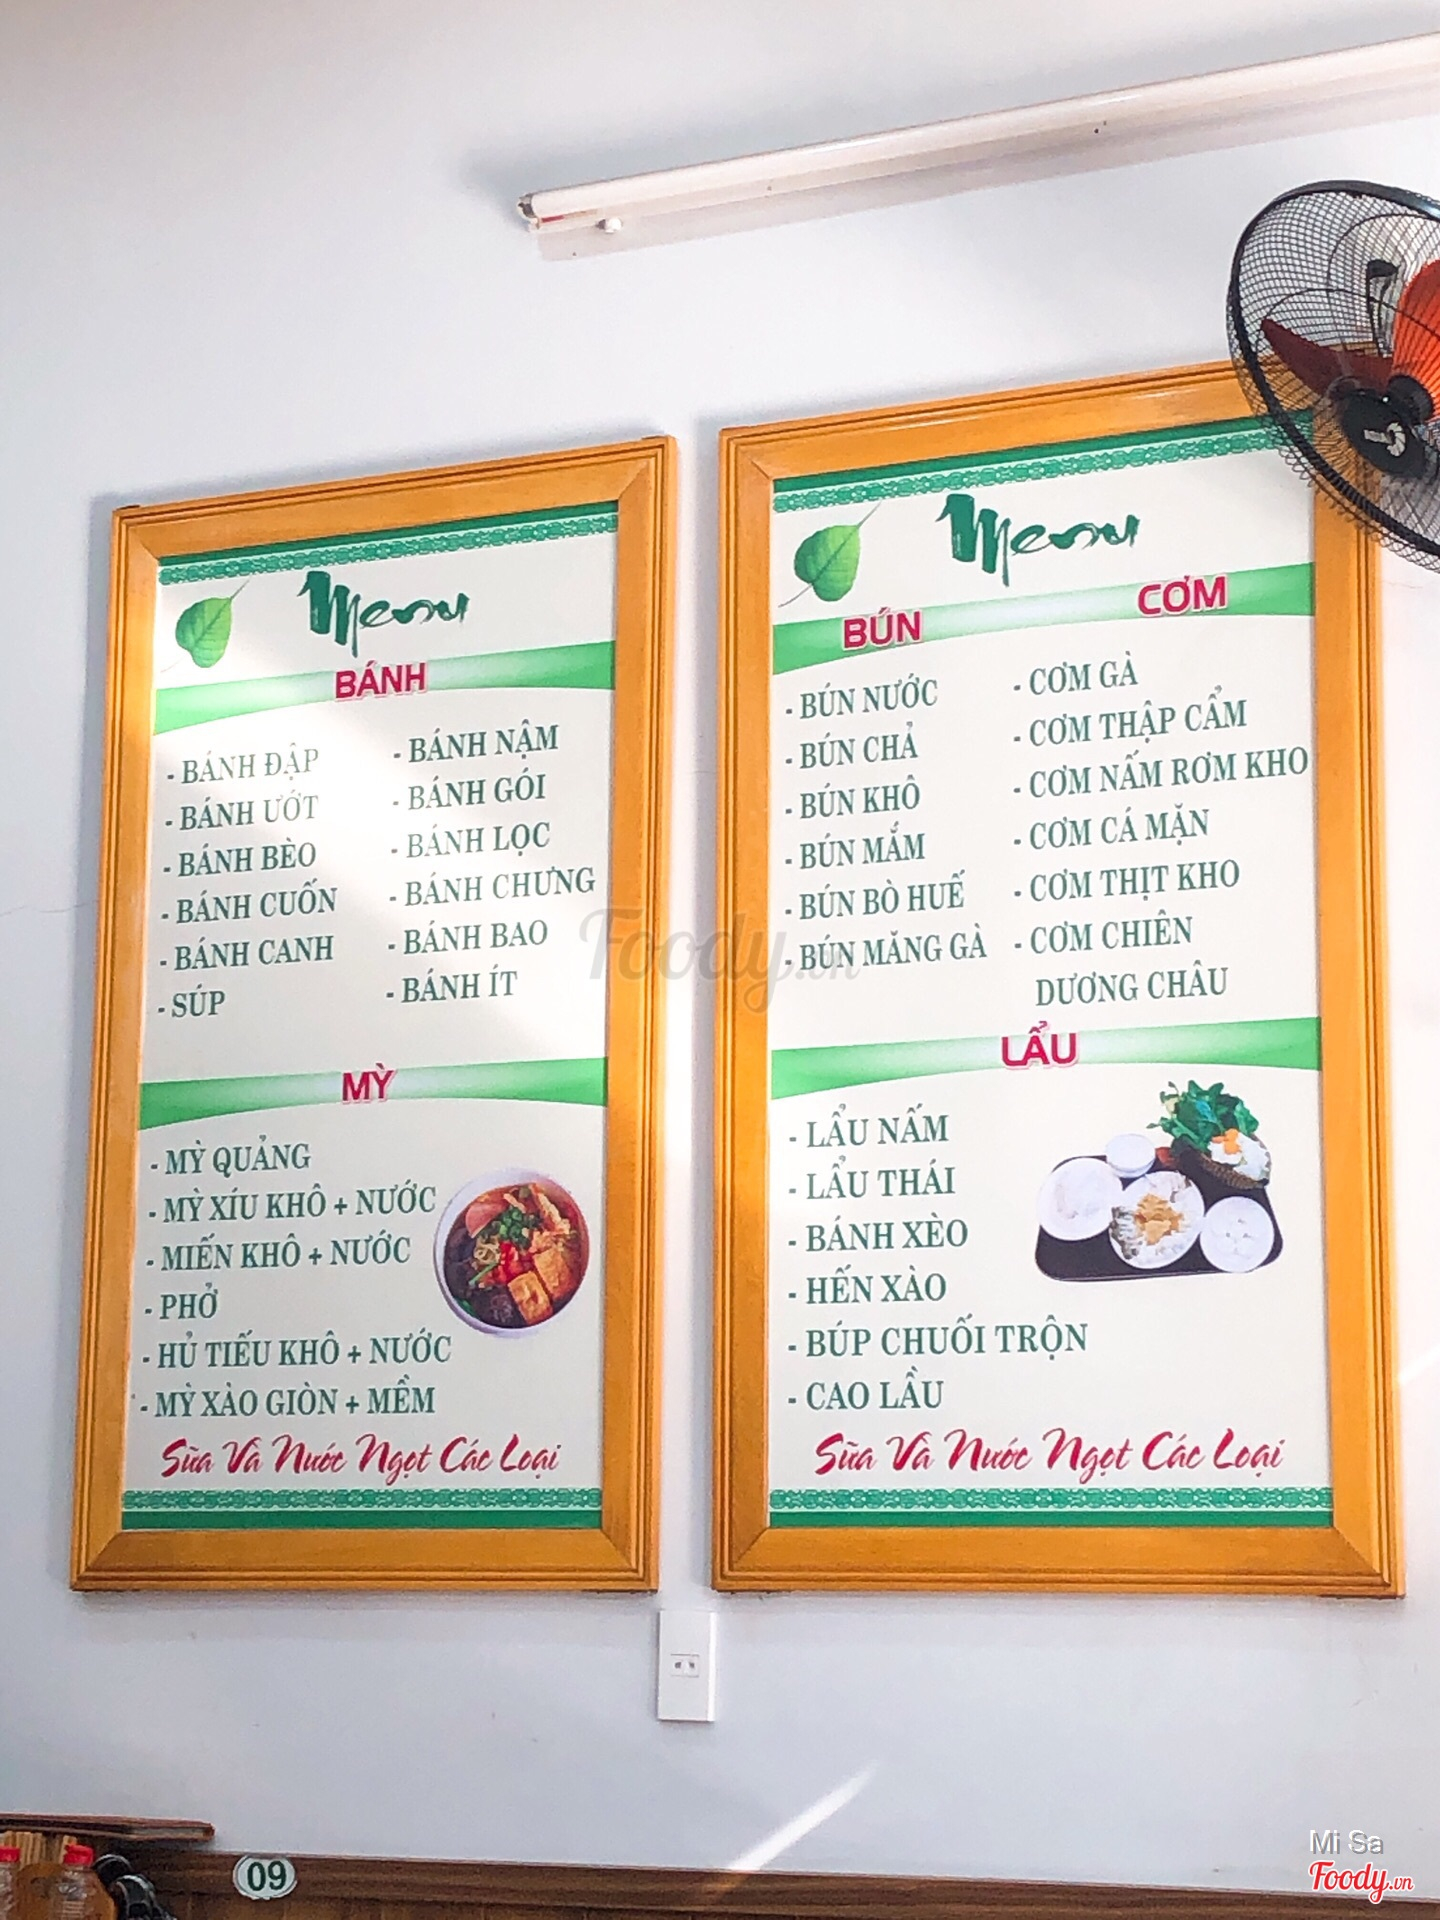 Menu
BÁNH
- BÁNH ĐẬP
- BÁNH ƯỚT
- BÁNH BÈO
- BÁNH CUỐN
- BÁNH CANH
- SÚP
- BÁNH NẬM
- BÁNH GÓI
- BÁNH LỌC
- BÁNH CHƯNG
- BÁNH BAO
- BÁNH ÍT
MỲ
- MỲ QUẢNG
- MỲ XÍU KHÔ + NƯỚC
- MIẾN KHÔ + NƯỚC
- PHỞ
- HỦ TIẾU KHÔ + NƯỚC
- MỲ XÀO GIÒN + MỀM
Sữa Và Nước Ngọt Các Loại
Menu
BÚN
- BÚN NƯỚC
- BÚN CHẢ
- BÚN KHÔ
- BÚN MẮM
- BÚN BÒ HUẾ
- BÚN MĂNG GÀ
CƠM
- CƠM GÀ
- CƠM THẬP CẨM
- CƠM NẤM RƠM KHO
- CƠM CÁ MẶN
- CƠM THỊT KHO
- CƠM CHIÊN
DƯƠNG CHÂU
LẨU
- LẨU NẤM
- LẨU THÁI
- BÁNH XÈO
- HẾN XÀO
- BÚP CHUỐI TRỘN
- CAO LẦU
Sữa Và Nước Ngọt Các Loại
Foody.vn
09
Mi Sa
Foody.vn